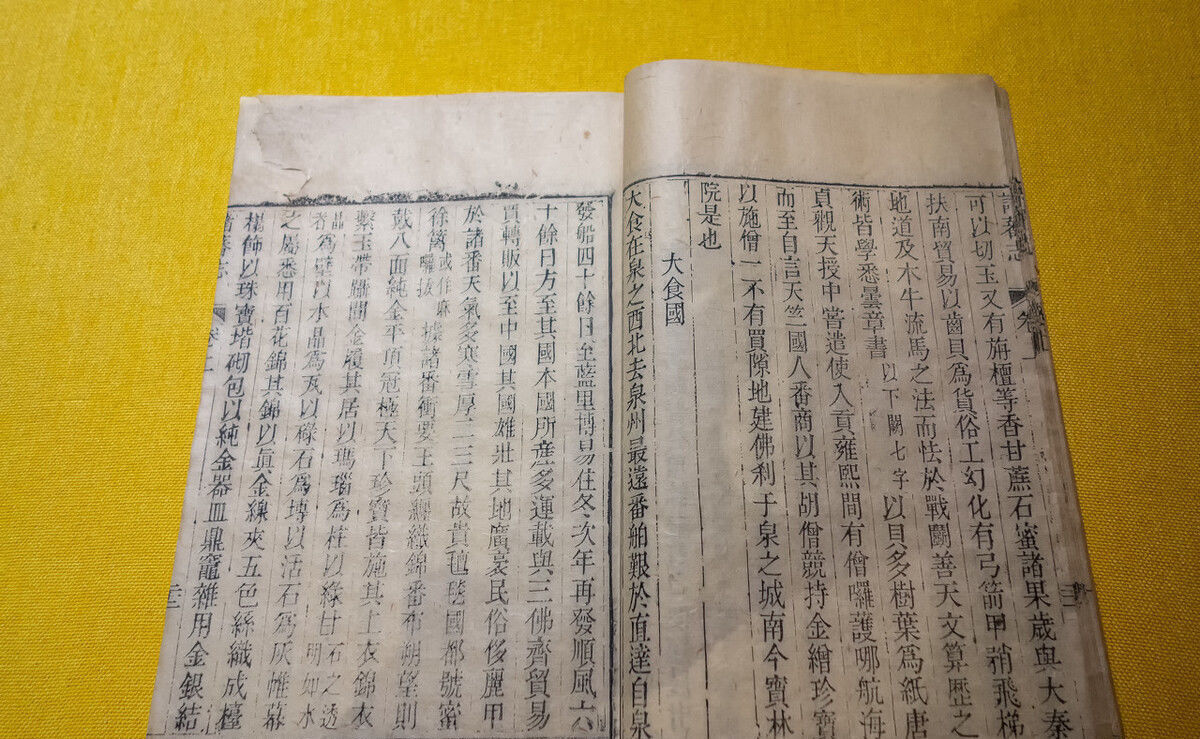 諸蕃志 卷
可以切玉又有旃檀等香甘蔗石蜜諸果歲與大秦
扶南貿易以齒貝為貨俗工幻化有弓箭甲矟飛梯
地道及木牛流馬之法而怯於戰鬭善天文算歷之
術皆學悉曇章書以下闕七字以貝多樹葉為紙唐
貞觀天授中嘗遣使入貢雍熙間有僧囉護哪航海
而至自言天竺國人番商以其胡僧競持金繒珍寶
以施僧一不有買隙地建佛刹于泉之城南今寶林
院是也
大食國
大食在泉之西北去泉州最遠番舶艱於直達自泉
發船四十餘日至藍里博易住冬次年再發順風六
十餘日方至其國本國所産多運載與三佛齊貿易
賈轉販以至中國其國雄壯其地廣袤民俗侈麗甲
於諸番天氣多寒雪厚二三尺故貴氊毯國都號蜜
徐籬或作麻囉拔據諸番衝要王頭纏織錦番布朔望則
戴八面純金平頂冠極天下珍寶皆施其上衣錦衣
繫玉帶躡間金履其居以瑪瑙為柱以綠甘石之透明如水
晶者為壁以水晶為瓦以碌石為塼以活石為灰帷幕
之屬悉用百花錦其錦以真金線夾五色絲織成檯
榻飾以珠寶堦砌包以純金器皿鼎竈雜用金銀結
諸蕃志 卷上